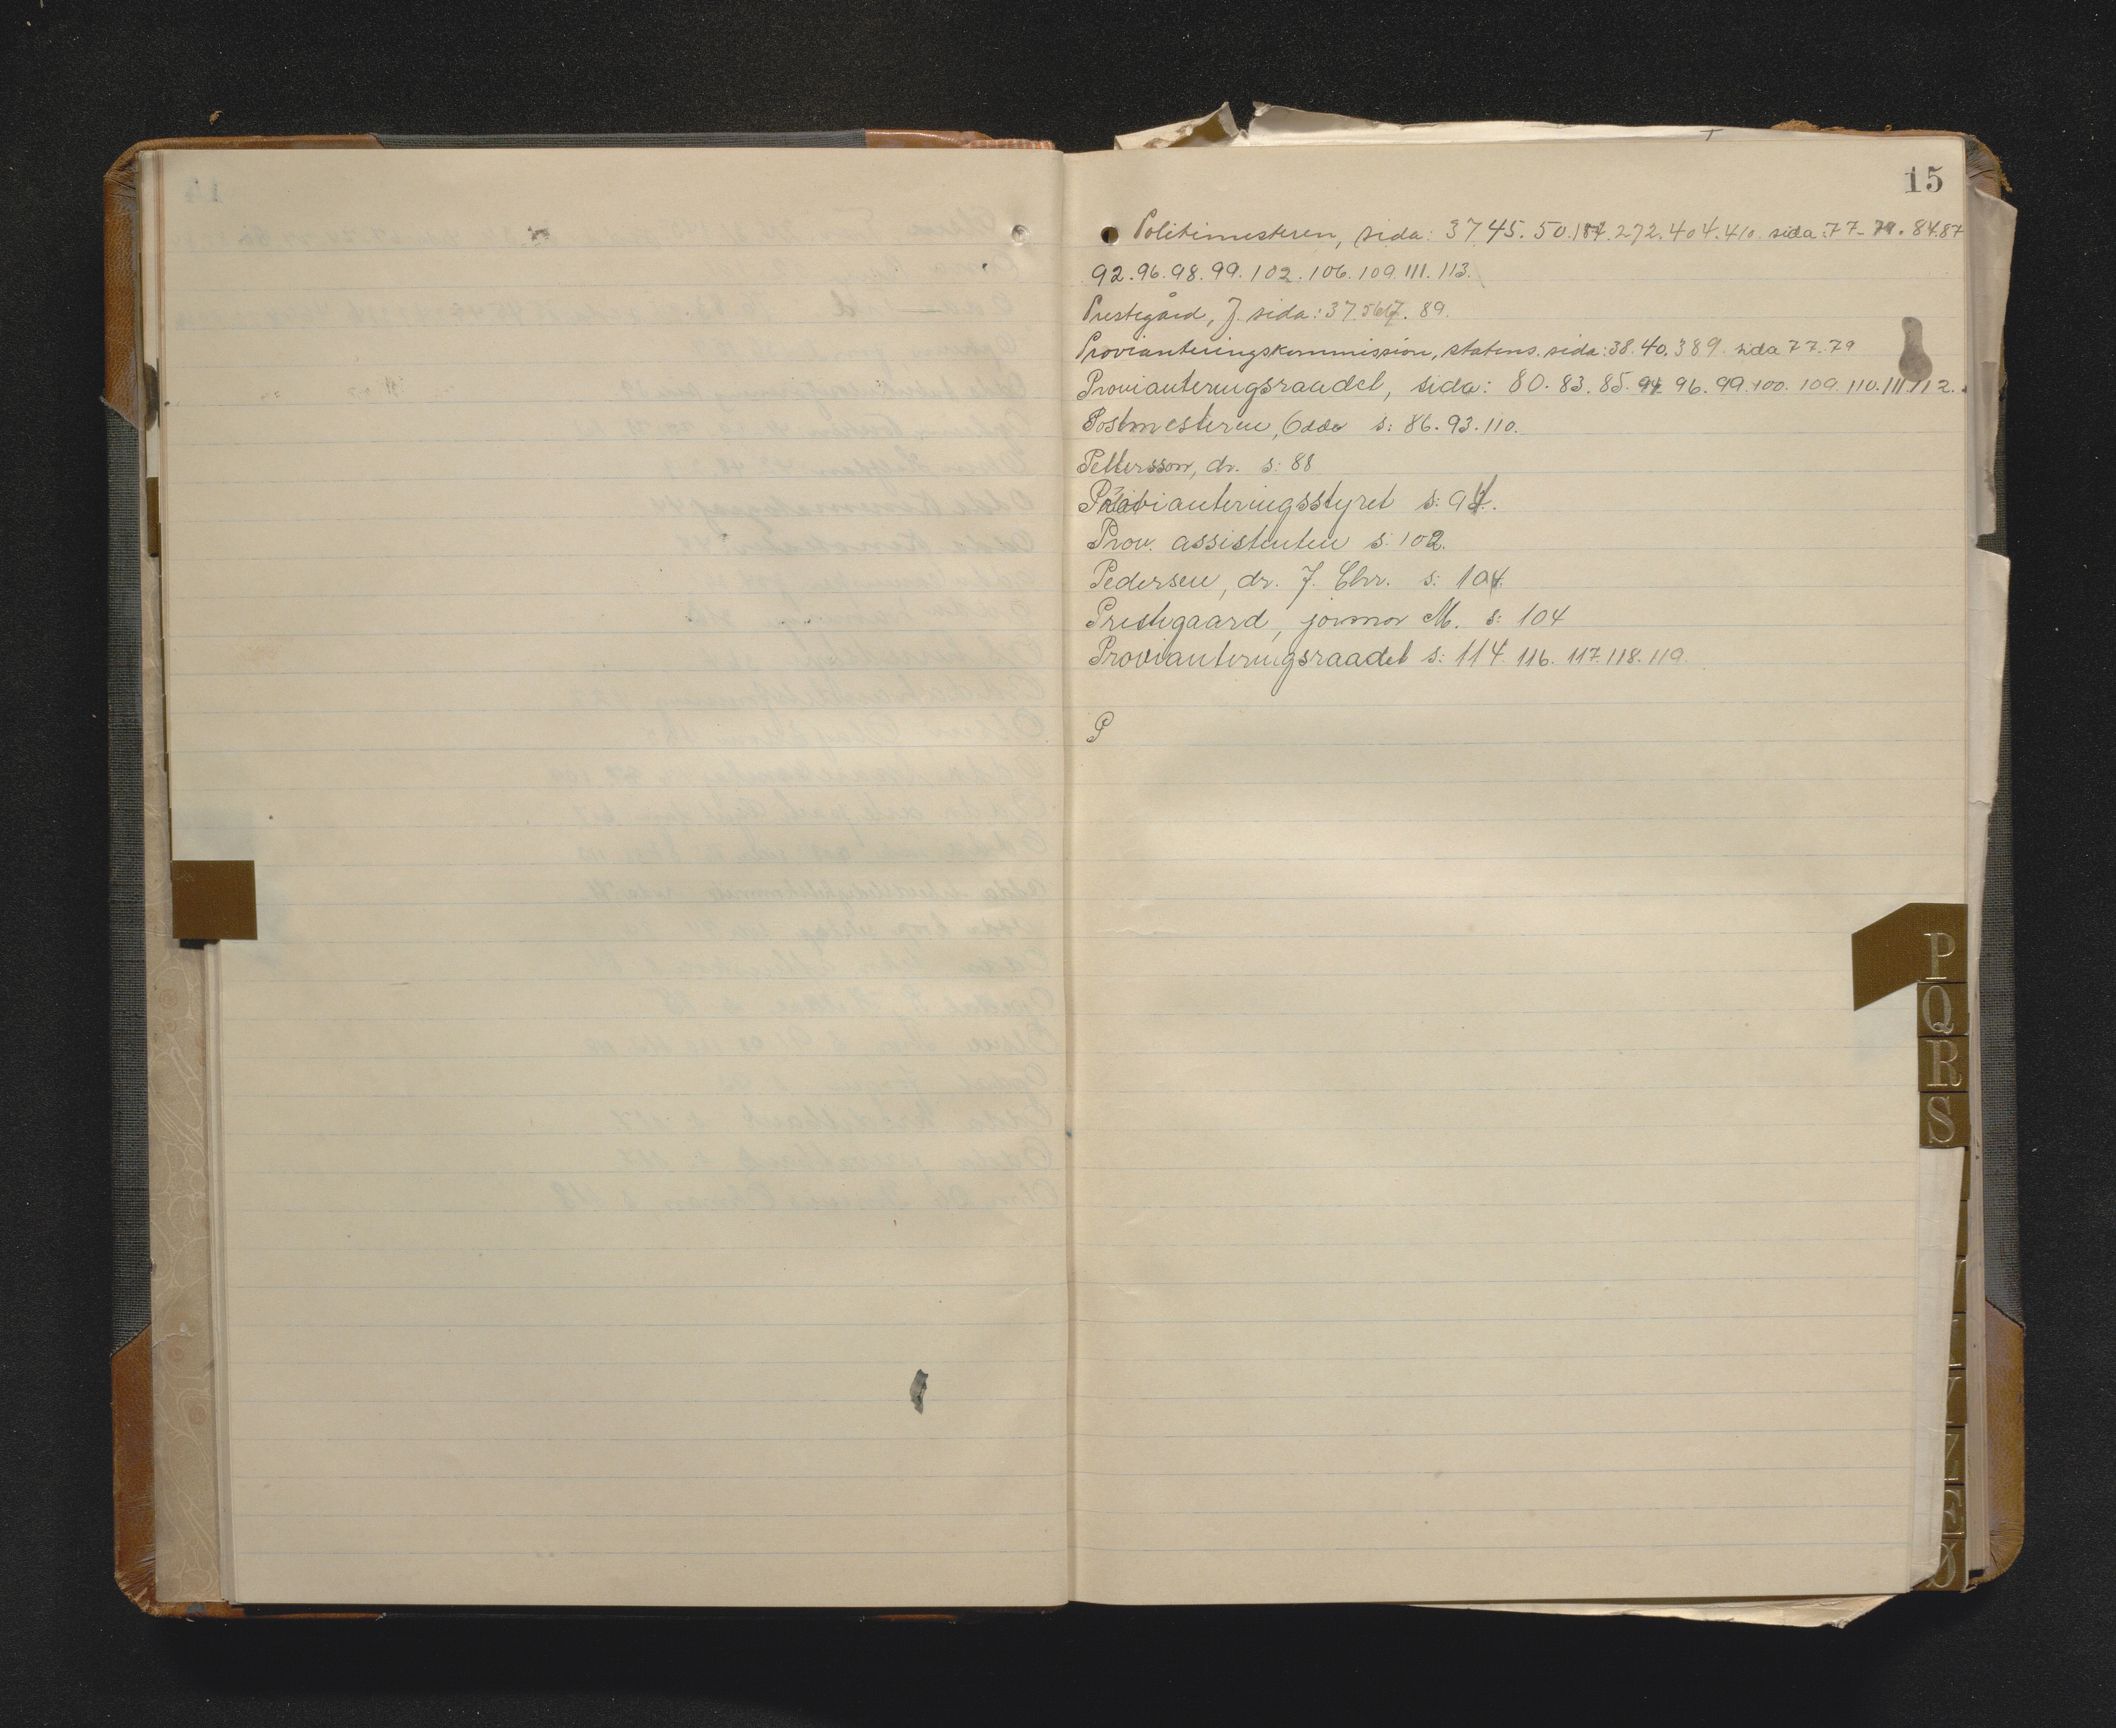 15
Politimesteren, sida: 37.45.50.184.272.404.410. sida: 77-79.84.87
92.96.98.99.102.106.109.111.113.
Prestegård, J. sida: 37. 89.
Provianteringskommission, statens. sida: 38.40.389. sida 77.79
Provianteringsraadet, sida: 80.83.85.94.96.99.100.109.110.111.112.
Postmesteren, Odda s: 86.93.110.
Pettersson, dr. s: 88
Provianteringsstyret s: 94.
Prov. assistenten s: 102.
Pedersen, dr. J. Chr. s: 104.
Prestegaard, jormor M. s: 104
Provianteringsraadet s: 114. 116. 117.118.119.
P
P
Q
R
S
V
Z
Æ
Ø